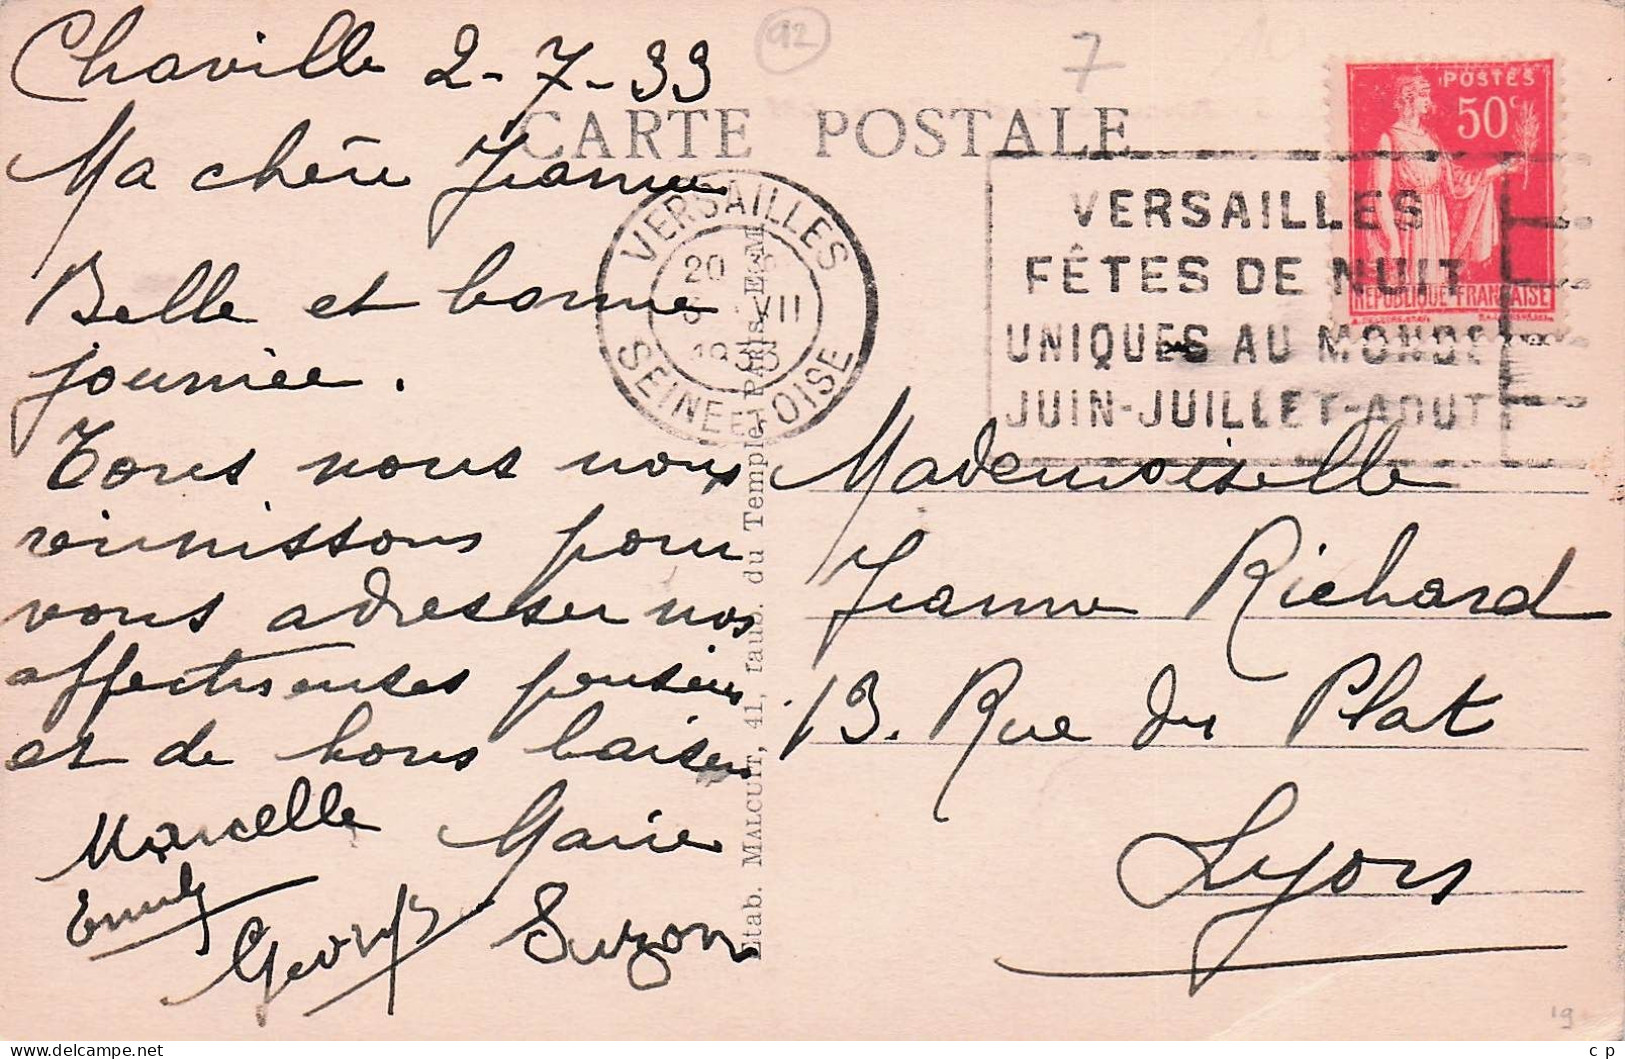 Chaville 2-7-33
92
7
CARTE POSTALE
Ma chère Jeanne
Belle et bonne
journée.
Tous nous nous
réunissons pour
vous adresser nos
affectueuses pensées
et de bons baisers
Marcelle Marie
Georges Suzon
VERSAILLES
20
VII
SEINE-E-OISE
VERSAILLES
FÊTES DE NUIT
UNIQUES AU MONDE
JUIN-JUILLET-AOUT
POSTES
50c
REPUBLIQUE FRANÇAISE
Etab. MALCUIT, 41, faub. du Temple, PARIS. E M
Mademoiselle
Jeanne Richard
13. Rue du Plat
Lyon
19
c p